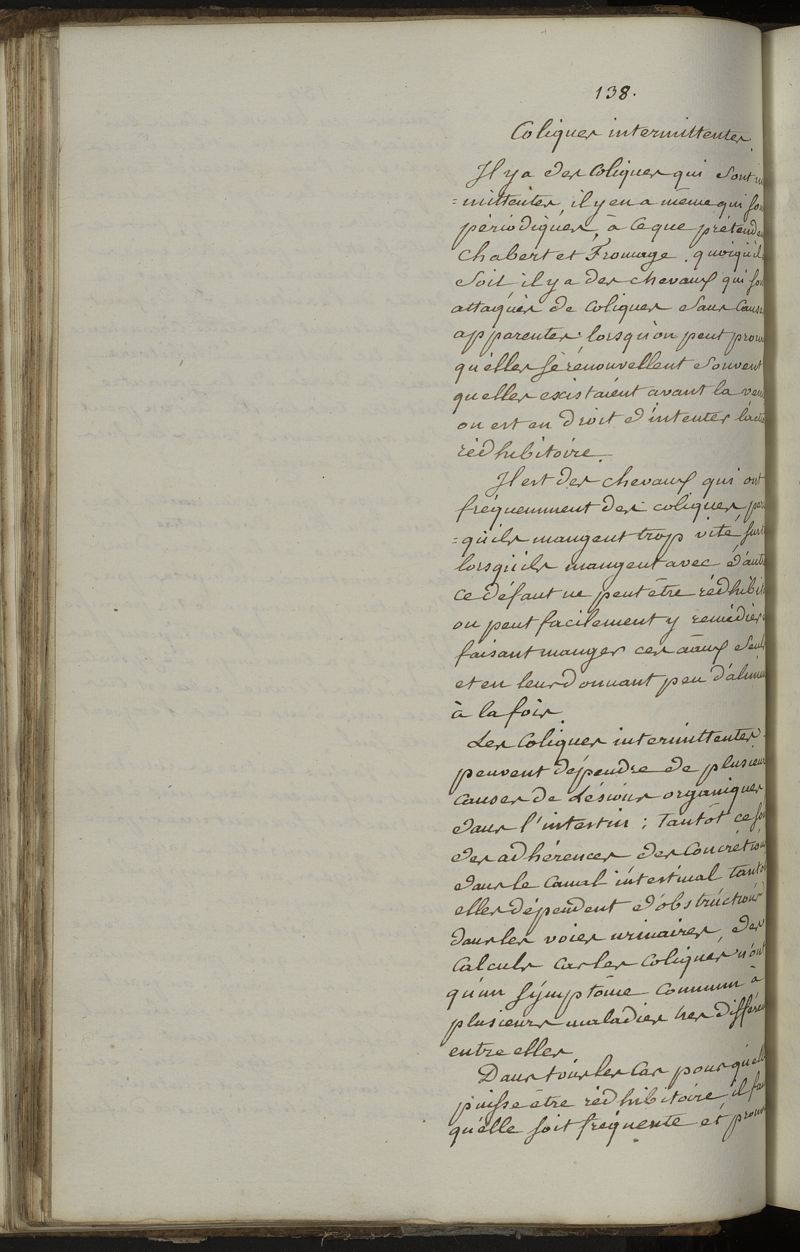 138.
Coliques intermittentes.
Il y a des Coliques qui sont in
=mittentes, il y en a même qui so
périodiques, à ce que prétende
Chabert et Fromage. quoiqu'il
soit il y a des chevaux qui so
attaqués de Coliques sans Caus
apparentes. lorsqu'on peut prou
qu'elles se rénouvellent souvent
qu'elles existaient avant la ven
on est en droit d'intenter l'acti
rédhibitoire.
Il est des chevaux qui ont
fréquemment des coliques, par
=qu'ils mangent trop vite, surt
lorsqu'ils mangent avec d'autr
ce défaut ne peut être rédhibit
on peut facilement y remédier
faisant manger ces aãux seul
et en leur donnant peu d'alime
à la fois.
Les Coliques intermittentes
peuvent dépendre de plusieur
causes de Lésions organiques
dans l'intestin ; tantôt ce so
des adhérences des Concrétion
dans le Canal intestinal tantô
elles dépendent d'obstructions
dans les voies urinaires, des
Calculs car les Coliques n'ont
qu'un symptôme commun à
plusieurs maladies très différen
entre elles
Dans tous les Cas pour qu'ell
puisse être rédhibitoire, il fa
qu'elle soit fréquente et prouv